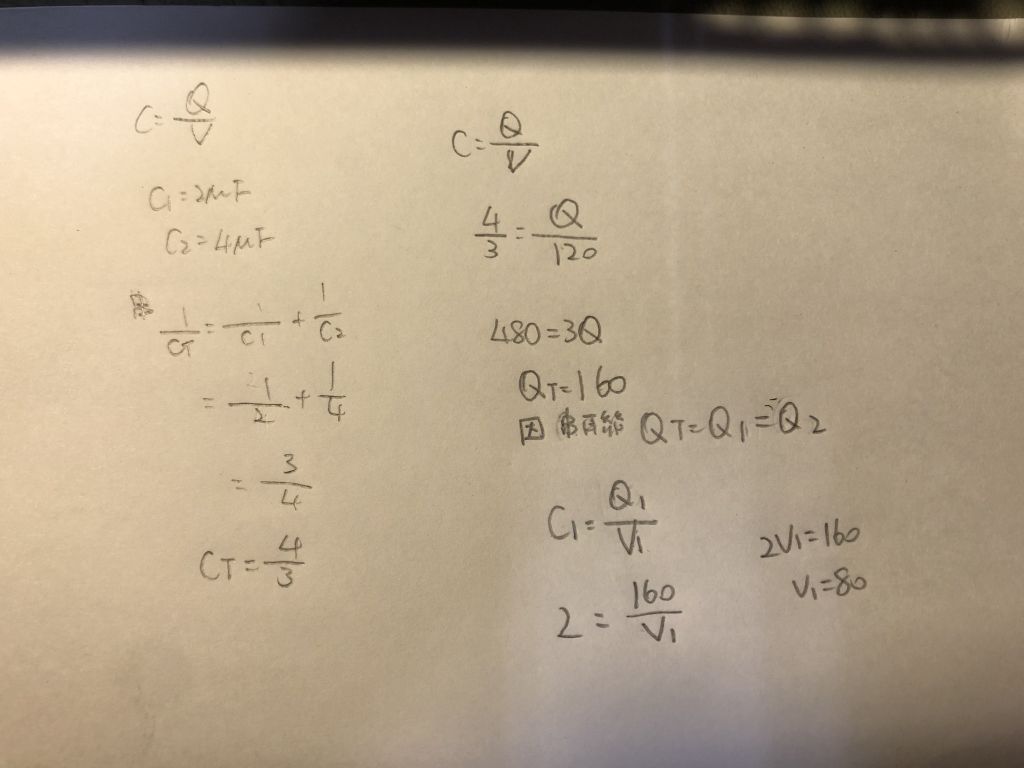 C=Q/V
C1=2μF
C2=4μF
1/CT=1/C1+1/C2
=1/2+1/4
=3/4
CT=4/3
C=Q/V
4/3=Q/120
480=3Q
QT=160
因 QT=Q1=Q2
C1=Q1/V1
2=160/V1
2V1=160
V1=80